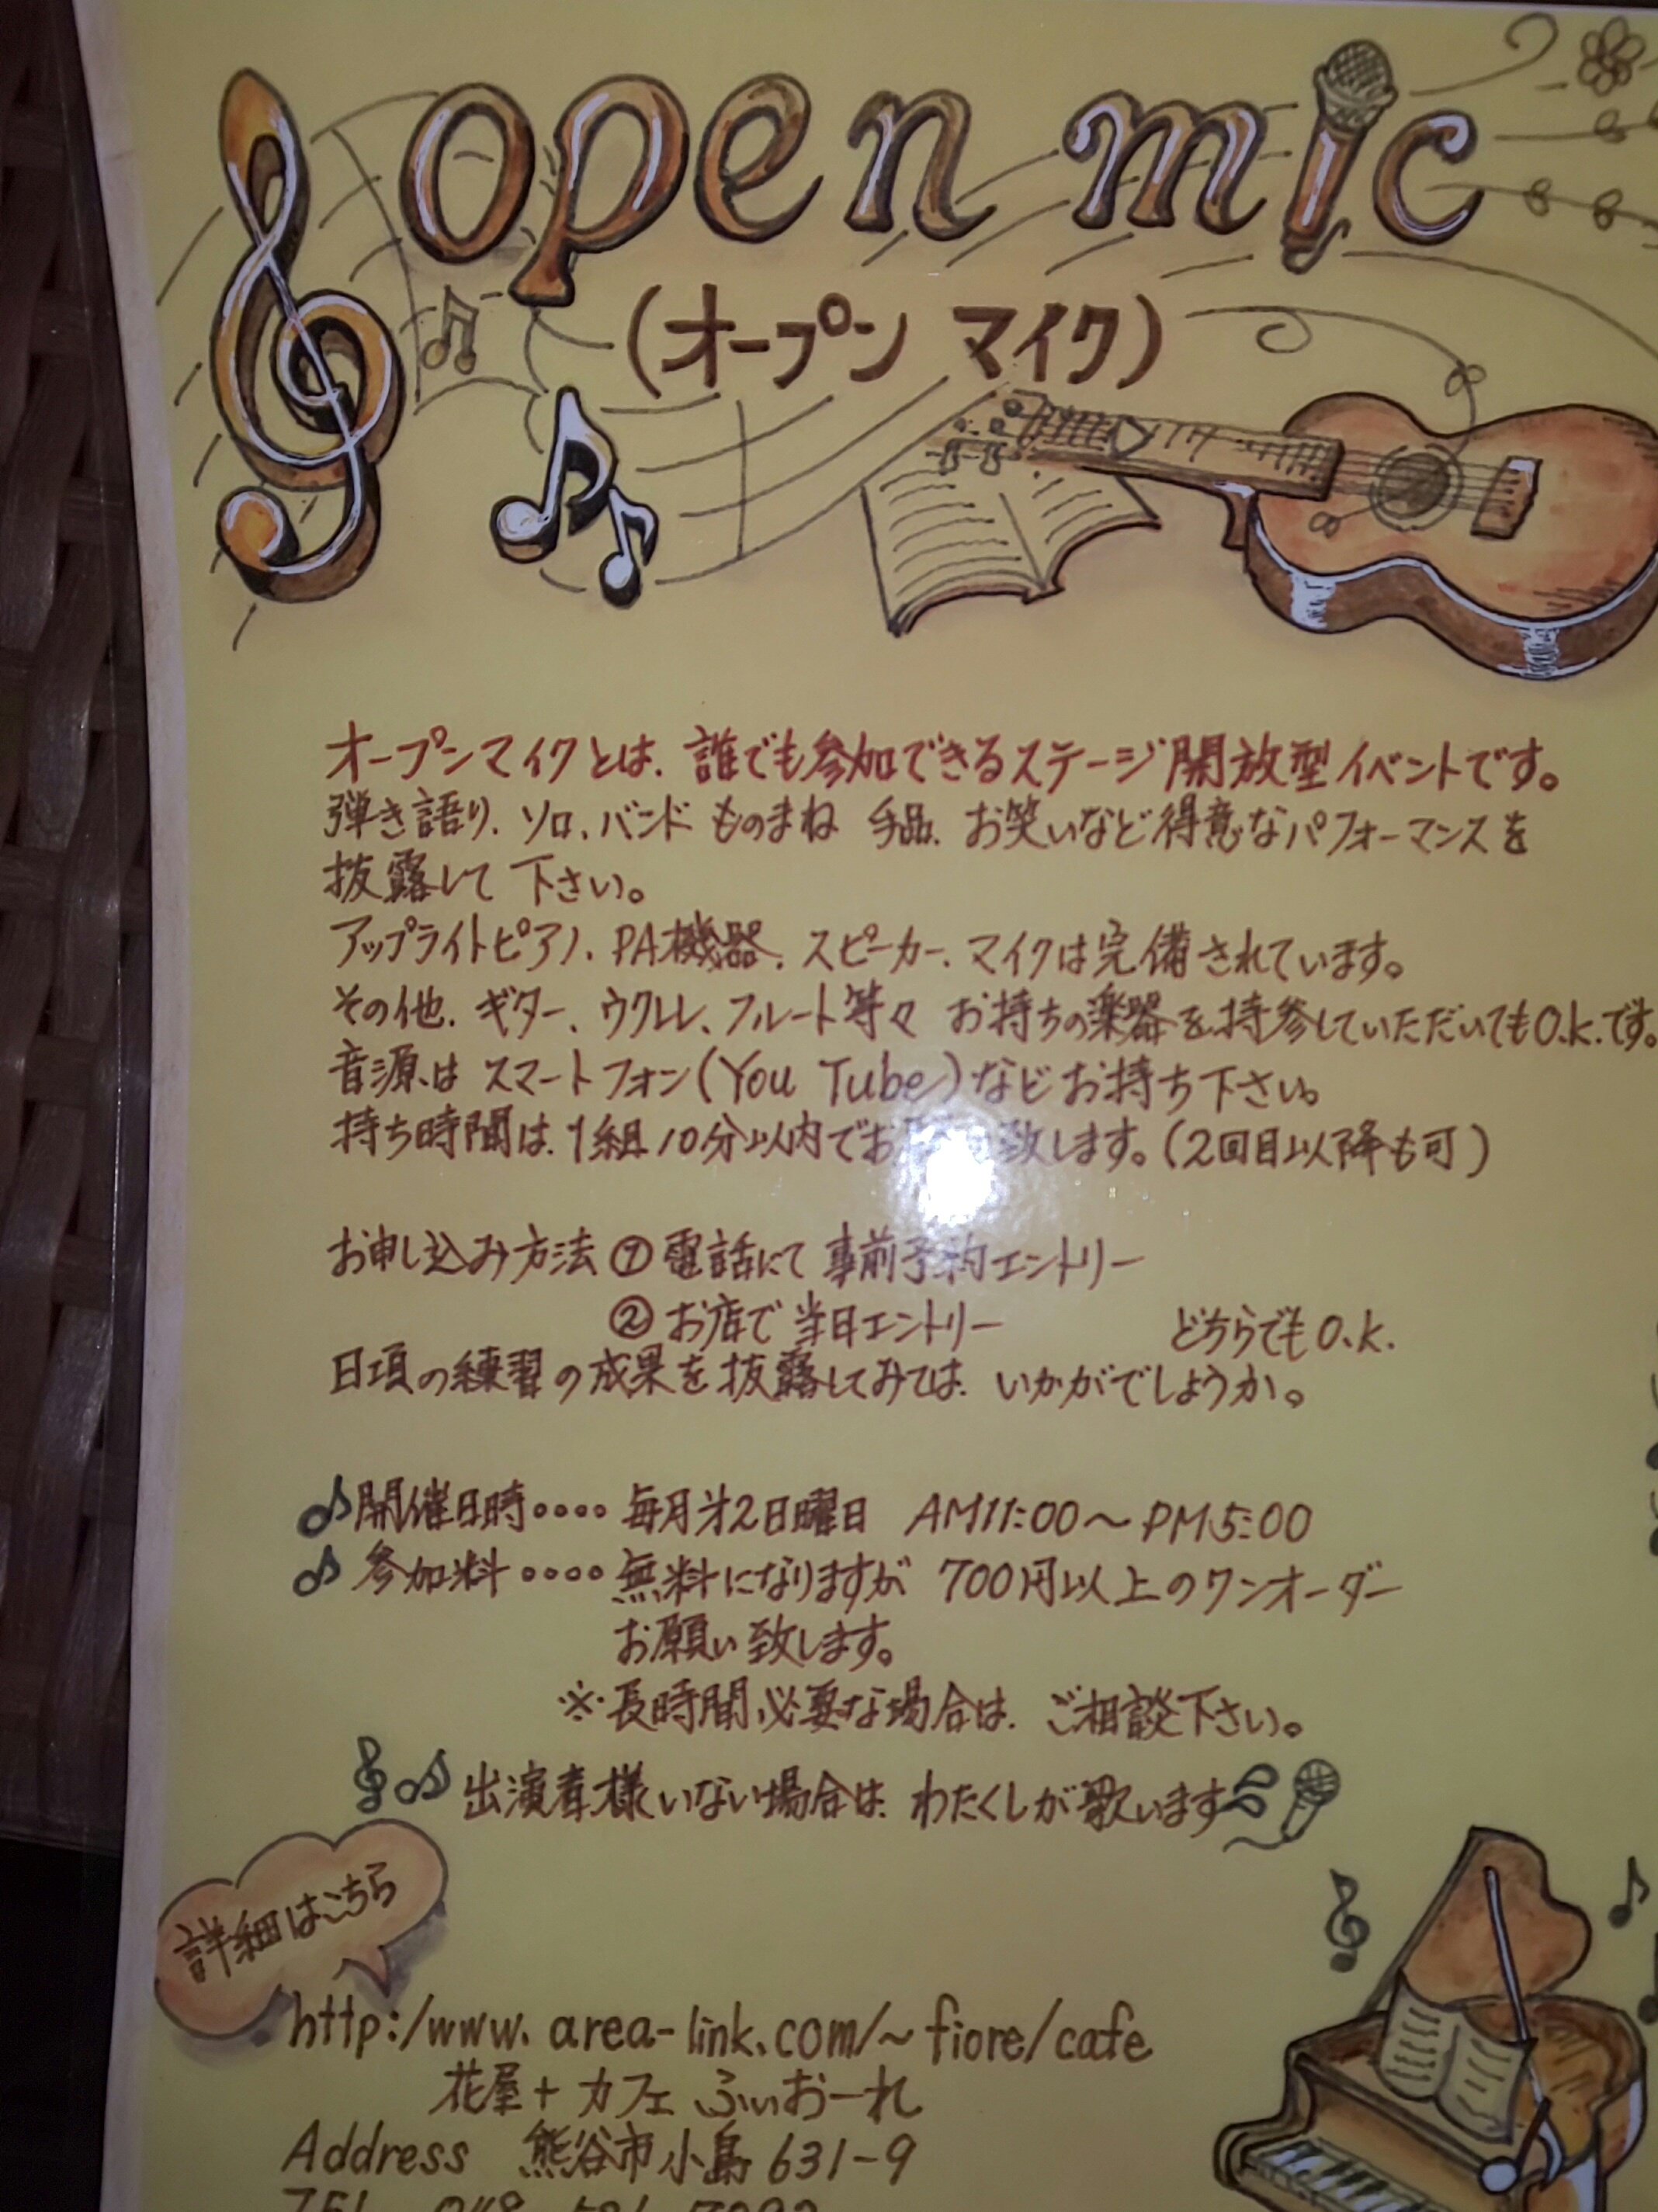 open mic
(オープン マイク)
オープンマイクとは、誰でも参加できるステージ開放型イベントです。
弾き語り、ソロ、バンド ものまね 手品、お笑いなど得意なパフォーマンスを
披露して 下さい。
アップライトピアノ、PA機器、スピーカー、マイクは完備されています。
その他、ギター、ウクレレ、フルート等々 お持ちの楽器を持参していただいてもO.k.です。
音源は スマートフォン(You Tube)などお持ち下さい。
持ち時間は、1組10分以内でお 致します。(2回目以降も可)
お申し込み方法 ① 電話にて 事前予約エントリー
② お店で 当日エントリー どちらでもO.k.
日頃の練習の成果を披露してみては、いかがでしょうか。
開催日時・・・・毎月第2日曜日 AM11:00〜PM5:00
参加料・・・・無料になりますが 700円以上のワンオーダー
お願い致します。
※長時間必要な場合は、ご相談下さい。
出演者様いない場合は、わたくしが歌います
詳細はこちら
http:/www.area-link.com/~fiore/cafe
花屋+カフェ ふぃおーれ
Address 熊谷市小島631-9
TEL